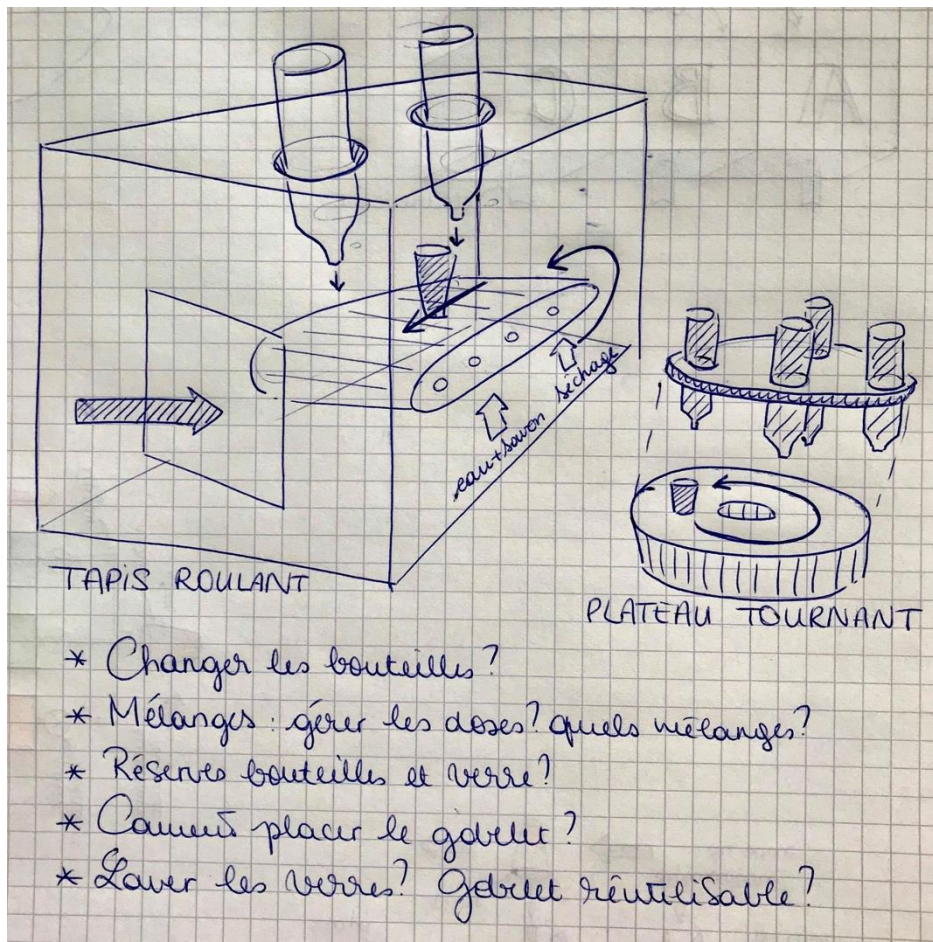 eau+savon séchage
TAPIS ROULANT
PLATEAU TOURNANT
* Changer les bouteilles?
* Mélanges : gérer les doses? quels mélanges?
* Réserves bouteilles et verre?
* Comment placer le gobelet?
* Laver les verres? Gobelet réutilisable?